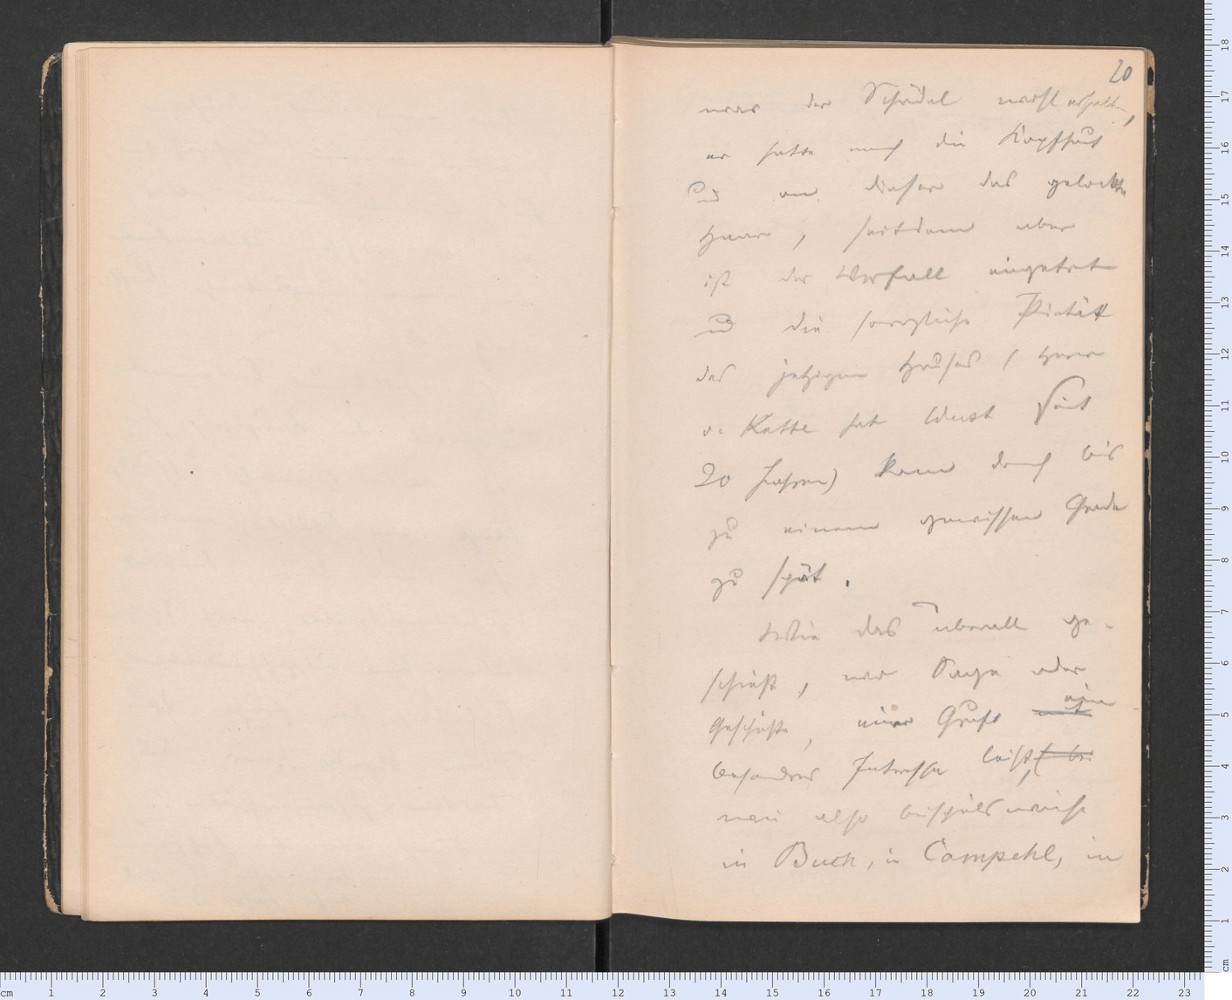 20
war der Schädel wohl erhalten,
er hatte noch die Kopfhaut
u an dieser das gelockte
Haar, seitdem aber
ist der Verfall eingetret
u die sorgliche Pietät
des jetzigen Hauses (Herr
v. Katte hat Wust seit
20 Jahren) kam doch bis
zu einem gewissen Grade
zu spät.
Wie das überall ge-
schieht, wo Sage oder
Geschichte, einer Gruft ein
besondres Interesse leiht, (bei
wie also beispielsweise
in Buch, in Campehl, in